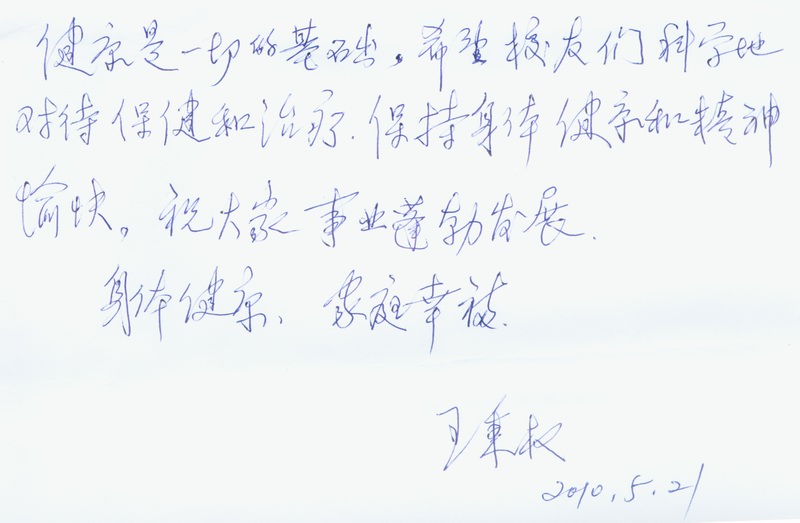 健康是一切的基础。希望校友们科学地
对待保健和治疗.保持身体健康和精神
愉快。祝大家事业蓬勃发展.
身体健康、家庭幸福.
王秉权
2010.5.21